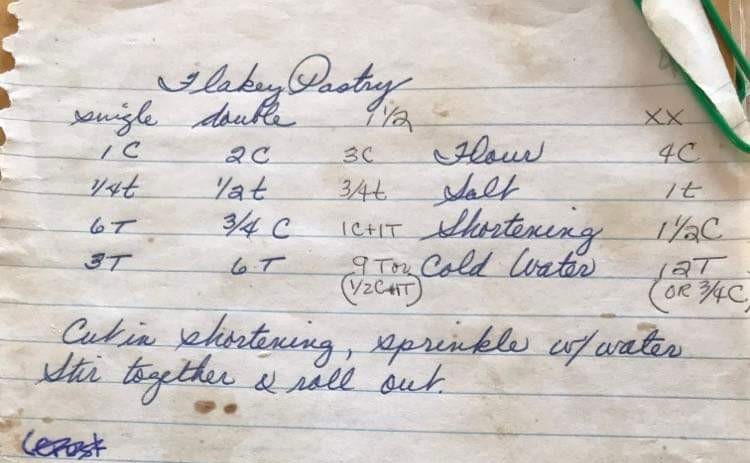 Flakey Pastry
single double 1 1/2 XX
1C 2C 3C Flour 4C
1/4t 1/2t 3/4t Salt 1t
6T 3/4 C 1C+1T Shortening 1 1/2C
3T 6T 9T or Cold Water 12T
(1/2C+1T) (OR 3/4C)
Cut in shortening, sprinkle w/ water
Stir together & roll out.